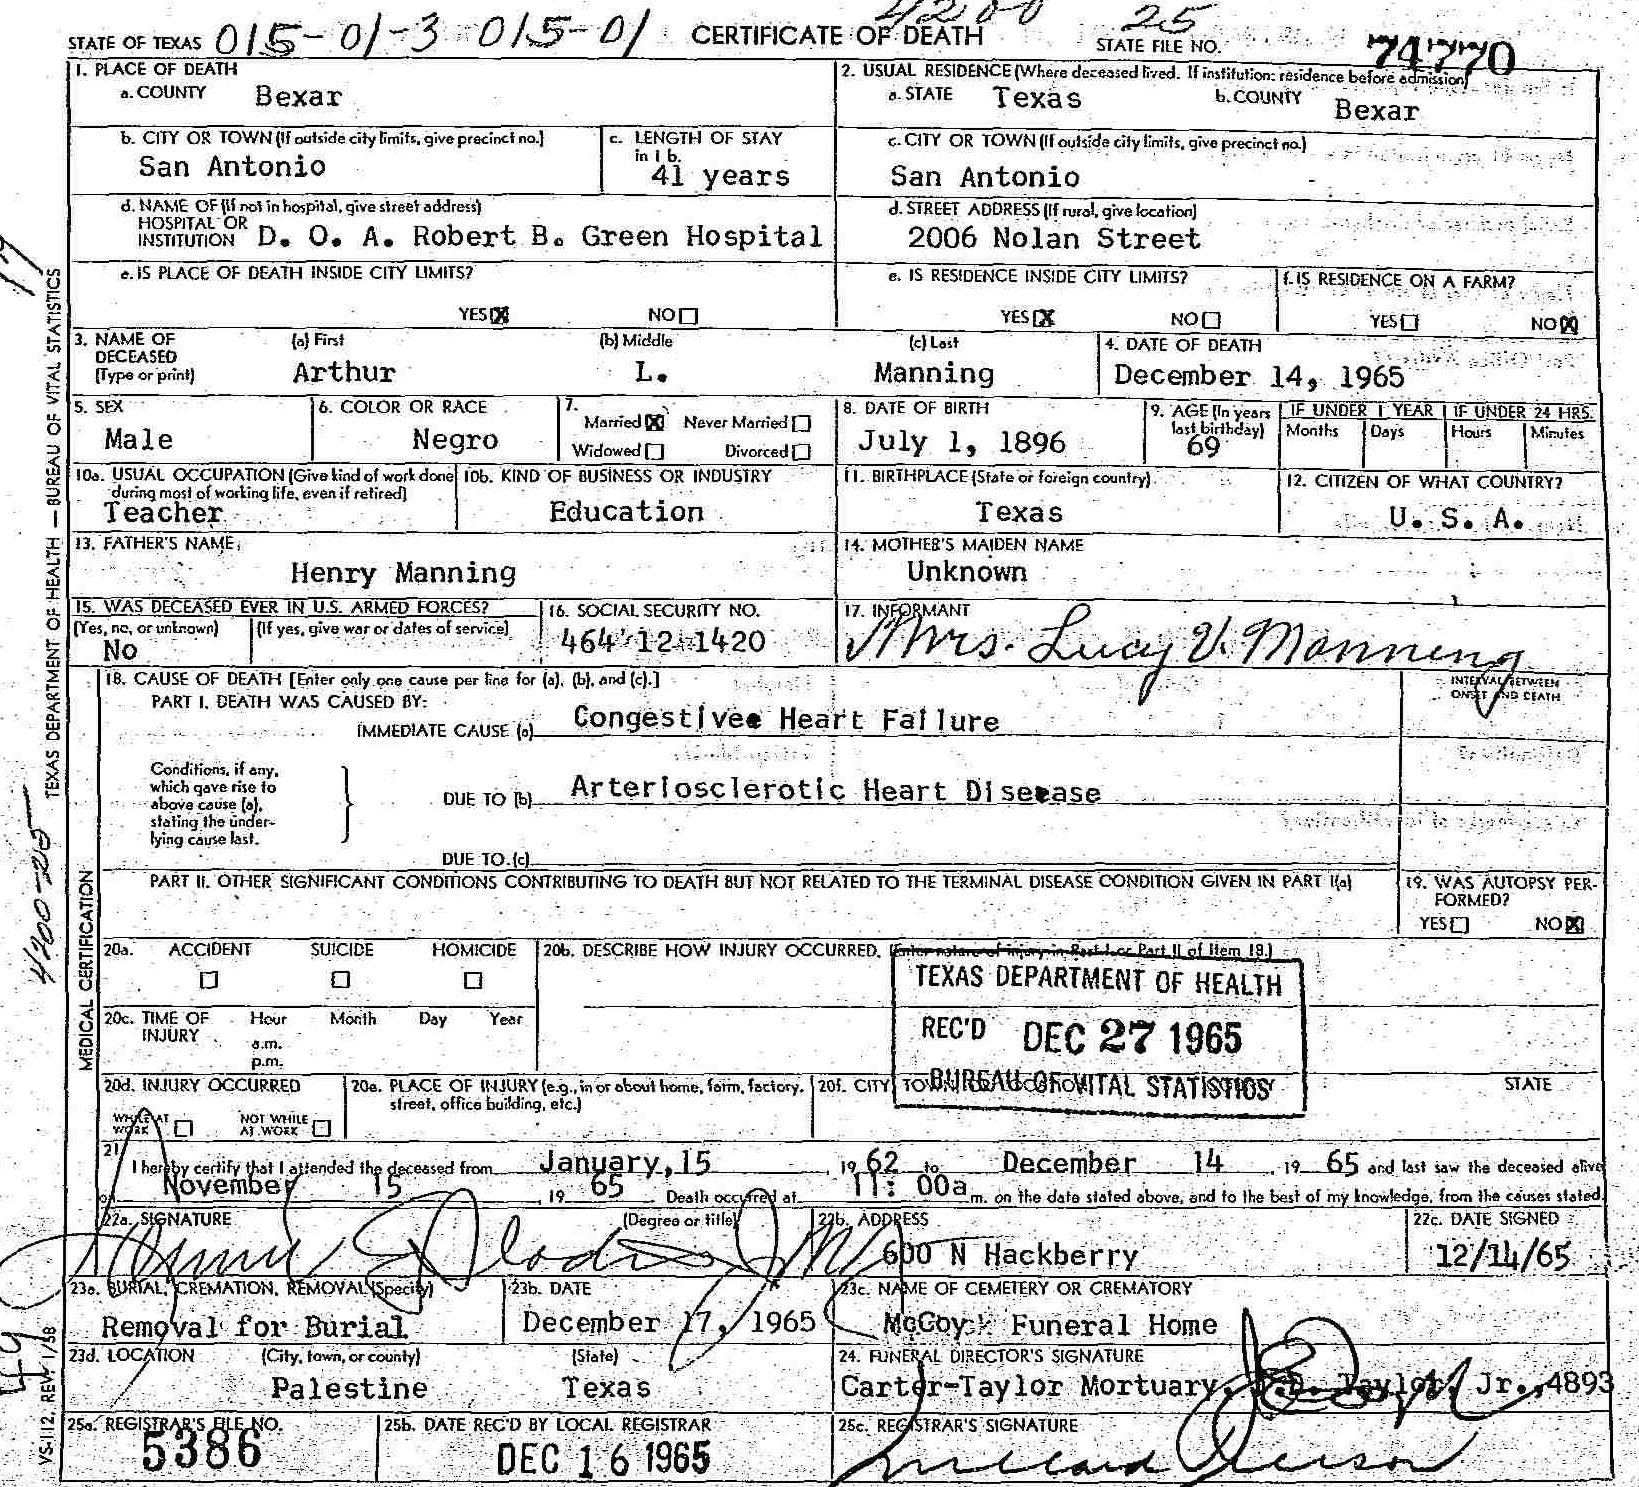 4200 25
STATE OF TEXAS 015-01-3 015-01 CERTIFICATE OF DEATH STATE FILE NO. 74770
1. PLACE OF DEATH
a. COUNTY Bexar
2. USUAL RESIDENCE (Where deceased lived. If institution: residence before admission)
a. STATE Texas b. COUNTY Bexar
b. CITY OR TOWN (If outside city limits, give precinct no.)
San Antonio
c. LENGTH OF STAY
in 1 b.
41 years
c. CITY OR TOWN (If outside city limits, give precinct no.)
San Antonio
d. NAME OF (If not in hospital, give street address)
HOSPITAL OR
INSTITUTION D. O. A. Robert B. Green Hospital
d. STREET ADDRESS (If rural, give location)
2006 Nolan Street
e. IS PLACE OF DEATH INSIDE CITY LIMITS?
YES NO
e. IS RESIDENCE INSIDE CITY LIMITS?
YES NO
f. IS RESIDENCE ON A FARM?
YES NO
3. NAME OF
DECEASED
(Type or print)
(a) First (b) Middle (c) Last
Arthur L. Manning
4. DATE OF DEATH
December 14, 1965
5. SEX
Male
6. COLOR OR RACE
Negro
7.
Married Never Married
Widowed Divorced
8. DATE OF BIRTH
July 1, 1896
9. AGE (In years
last birthday)
69
IF UNDER 1 YEAR IF UNDER 24 HRS.
Months Days Hours Minutes
10a. USUAL OCCUPATION (Give kind of work done
during most of working life, even if retired)
Teacher
10b. KIND OF BUSINESS OR INDUSTRY
Education
11. BIRTHPLACE (State or foreign country)
Texas
12. CITIZEN OF WHAT COUNTRY?
U. S. A.
13. FATHER'S NAME
Henry Manning
14. MOTHER'S MAIDEN NAME
Unknown
15. WAS DECEASED EVER IN U.S. ARMED FORCES?
(Yes, no, or unknown) (If yes, give war or dates of service)
No
16. SOCIAL SECURITY NO.
464 12 1420
17. INFORMANT
Mrs. Lucy V. Manning
18. CAUSE OF DEATH [Enter only one cause per line for (a), (b), and (c).]
PART I. DEATH WAS CAUSED BY:
INTERVAL BETWEEN
ONSET AND DEATH
IMMEDIATE CAUSE (a) Congestivee Heart Failure
Conditions, if any,
which gave rise to
above cause (a),
stating the under-
lying cause last.
DUE TO (b) Arteriosclerotic Heart Disease
DUE TO (c)
PART II. OTHER SIGNIFICANT CONDITIONS CONTRIBUTING TO DEATH BUT NOT RELATED TO THE TERMINAL DISEASE CONDITION GIVEN IN PART I(a)
19. WAS AUTOPSY PER-
FORMED?
YES NO
20a. ACCIDENT SUICIDE HOMICIDE
20b. DESCRIBE HOW INJURY OCCURRED. (Enter nature of injury in Part I or Part II of Item 18.)
TEXAS DEPARTMENT OF HEALTH
REC'D DEC 27 1965
BUREAU OF VITAL STATISTICS
20c. TIME OF
INJURY
Hour Month Day Year
a.m.
p.m.
20d. INJURY OCCURRED
WHILE AT
WORK
NOT WHILE
AT WORK
20e. PLACE OF INJURY (e.g., in or about home, farm, factory,
street, office building, etc.)
20f. CITY, TOWN STATE
21.
I hereby certify that I attended the deceased from January, 15 1962 to December 14 1965 and last saw the deceased alive
on November 15 1965 Death occurred at 11: 00a m. on the date stated above, and to the best of my knowledge, from the causes stated.
22a. SIGNATURE (Degree or title)
22b. ADDRESS
600 N Hackberry
22c. DATE SIGNED
12/14/65
23a. BURIAL, CREMATION, REMOVAL (Specify)
Removal for Burial
23b. DATE
December 17, 1965
23c. NAME OF CEMETERY OR CREMATORY
McCoy Funeral Home
23d. LOCATION (City, town, or county) (State)
Palestine Texas
24. FUNERAL DIRECTOR'S SIGNATURE
Carter-Taylor Mortuary, Taylor, Jr., 4893
25a. REGISTRAR'S FILE NO.
5386
25b. DATE REC'D BY LOCAL REGISTRAR
DEC 16 1965
25c. REGISTRAR'S SIGNATURE
TEXAS DEPARTMENT OF HEALTH — BUREAU OF VITAL STATISTICS
MEDICAL CERTIFICATION
4200-25
VS-112, REV. 1/58